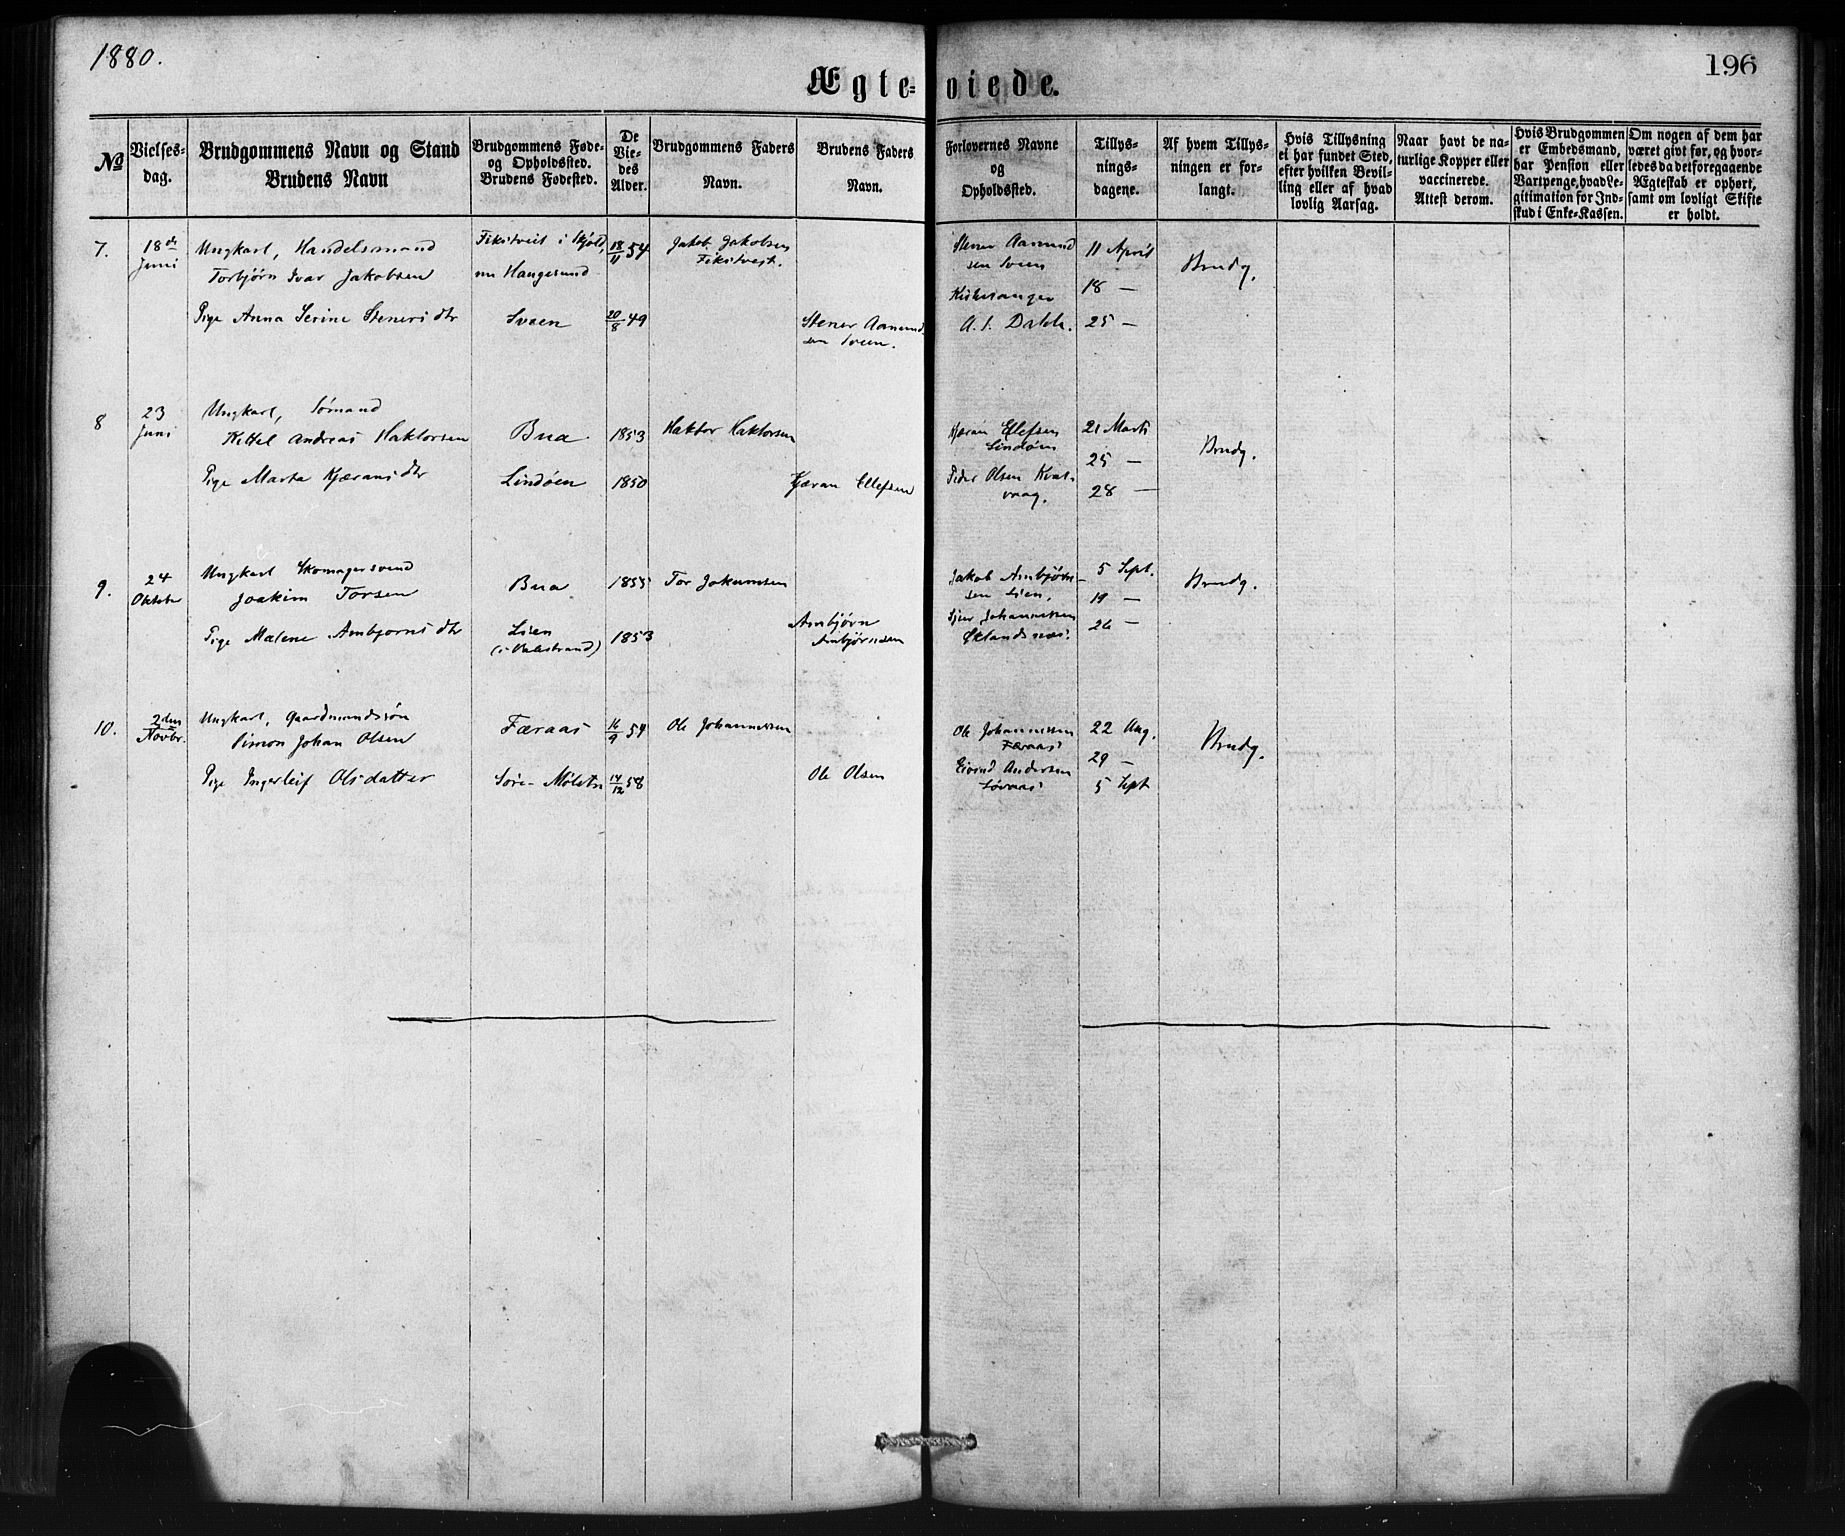 1880.
196
Ægte-viede.
No
Vielses-
dag.
Brudgommens Navn og Stand
Brudens Navn
Brudgommens Føde-
og Opholdssted.
Brudens Fødested.
De
Vie-
des
Alder.
Brudgommens Faders
Navn.
Brudens Faders
Navn.
Forlovernes Navne
og
Opholdssted.
Tillys-
nings-
dagene.
Af hvem Tillys-
ningen er for-
langt.
Hvis Tillysning
ei har fundet Sted,
efter hvilken Bevil-
ling eller af hvad
lovlig Aarsag.
Naar havt de na-
turlige Kopper eller
vaccinerede.
Attest derom.
Hvis Brudgommen
er Embedsmand,
har Pension eller
Vartpenge, hvad Le-
gitimation for Ind-
skud i Enke-Kassen.
Om nogen af dem har
været givt før, og hvor-
ledes da det foregaaende
Ægteskab er ophørt,
samt om lovligt Skifte
er holdt.
7.
18de
Juni
Ungkarl, Handelsmand
Torbjørn Ivar Jakobsen
Pige Anna Serine Steners dtr
Fikstveit i Skjold,
nu Haugesund
Sveen
18/11 54
20/8 49
Jakob Jakobsen
Fikstveit.
Stener Aamund
sen Sveen.
Stener Aamund
sen Sveen
A. S. Dalch.
11 April
18 —
25 —
Brudg.
8
23
Juni
Ungkarl, Sømand
Kittel Andreas Haktorsen
Pige Marta Kjærans dtr
Bua
Lindøen
1853
1850
Haktor Haktorsen
Kjæran Ellefsen
Kjæran Ellefsen
Lindøen
Peder Olsen Kval-
vaag.
21 Marts
25 —
28 —
Brudg.
9.
24
Oktober
Ungkarl Skomagersvend
Joakim Torsen
Pige Malene Ambjørns dtr
Bua
Lien
(i Valestrand)
1855
1853
Tor Jokumsen
Ambjørn
Ambjørnsen
Jakob Ambjørn-
sen Lien,
Johannessen
Øklandsnæs.
5 Sept.
19 —
26 —
Brudg.
10.
2den
Novbr.
Ungkarl, Gaardmandssøn
Simon Johan Olsen
Pige Ingerleif Olsdatter
Færaas
Søre-Mølstre
16/9 54
14/12 58
Ole Johannessen
Ole Olsen
Ole Johannessen
Færaas
Eivind Andersen
Løvaas
22 Aug.
29 —
5 Sept
Brudg.